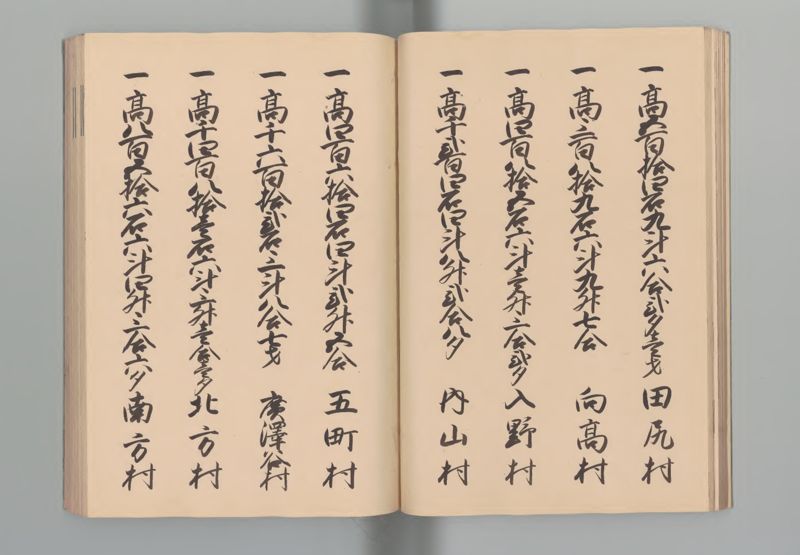 一高五百拾四石九斗六合弐夕壱才 田尻村
一高三百八拾九石六斗九升七合 向高村
一高四百八拾五石六斗壱升三合弐夕 入野村
一高千弐百四石四斗八升弐合八夕 内山村
一高四百六拾四石四斗弐升五合 五町村
一高千六百拾弐石三斗八合七才 廣澤谷村
一高千四百八拾壱石六斗三升壱合壱夕 北方村
一高八百五拾六石六斗四升三合六夕 南方村